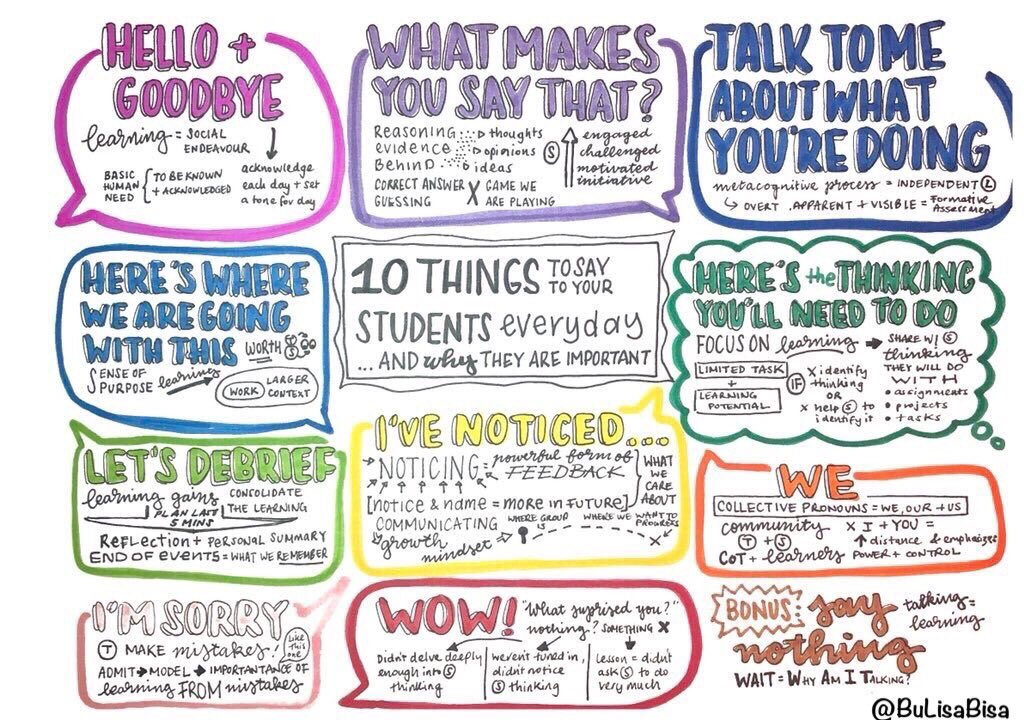 HELLO +
GOODBYE
learning = SOCIAL
ENDEAVOUR
BASIC
HUMAN
NEED
TO BE KNOWN
+ ACKNOWLEDGED
acknowledge
each day + set
a tone for day
WHAT MAKES
YOU SAY THAT?
Reasoning
evidence
BEHIND
thoughts
opinions
ideas
S
engaged
challenged
motivated
initiative
CORRECT ANSWER X GAME WE
GUESSING ARE PLAYING
TALK TO ME
ABOUT WHAT
YOU'RE DOING
metacognitive process = INDEPENDENT L
OVERT, APPARENT + VISIBLE = Formative
Assessment
HERE'S WHERE
WE ARE GOING
WITH THIS WORTH
SENSE OF
PURPOSE learning
WORK LARGER
CONTEXT
10 THINGS TO SAY
TO YOUR
STUDENTS everyday
... AND why THEY ARE IMPORTANT
HERE'S the THINKING
YOU'LL NEED TO DO
FOCUS ON learning
LIMITED TASK
+
LEARNING
POTENTIAL
IF
X identify
thinking
OR
X help S to
identify it
SHARE W/ S
thinking
THEY WILL DO
WITH
• assignments
• projects
• tasks
LET'S DEBRIEF
learning gains CONSOLIDATE
THE LEARNING
PLAN LAST
5 MINS
Reflection + PERSONAL SUMMARY
END OF EVENTS = WHAT WE REMEMBER
I'VE NOTICED...
NOTICING = powerful form of
FEEDBACK
[notice & name = more in FUTURE]
WHAT
WE
CARE
ABOUT
COMMUNICATING
growth
mindset
WHERE GROUP
IS
WHERE WE WANT TO
PROGRESS
X
WE
COLLECTIVE PRONOUNS = WE, OUR + US
community
T + S
COT + learners
X I + YOU =
distance & emphasizes
POWER + CONTROL
I'M SORRY
T MAKE mistakes!
Like
this
one
ADMIT MODEL IMPORTANTANCE OF
learning FROM mistakes
WOW!
"What suprised you?"
nothing? SOMETHING X
Didn't delve deeply
enough into S
thinking
weren't tuned in,
didn't notice
S thinking
Lesson = didn't
ask S to do
very much
BONUS: say
nothing
talking =
learning
WAIT = WHY AM I TALKING?
@BuLisaBisa